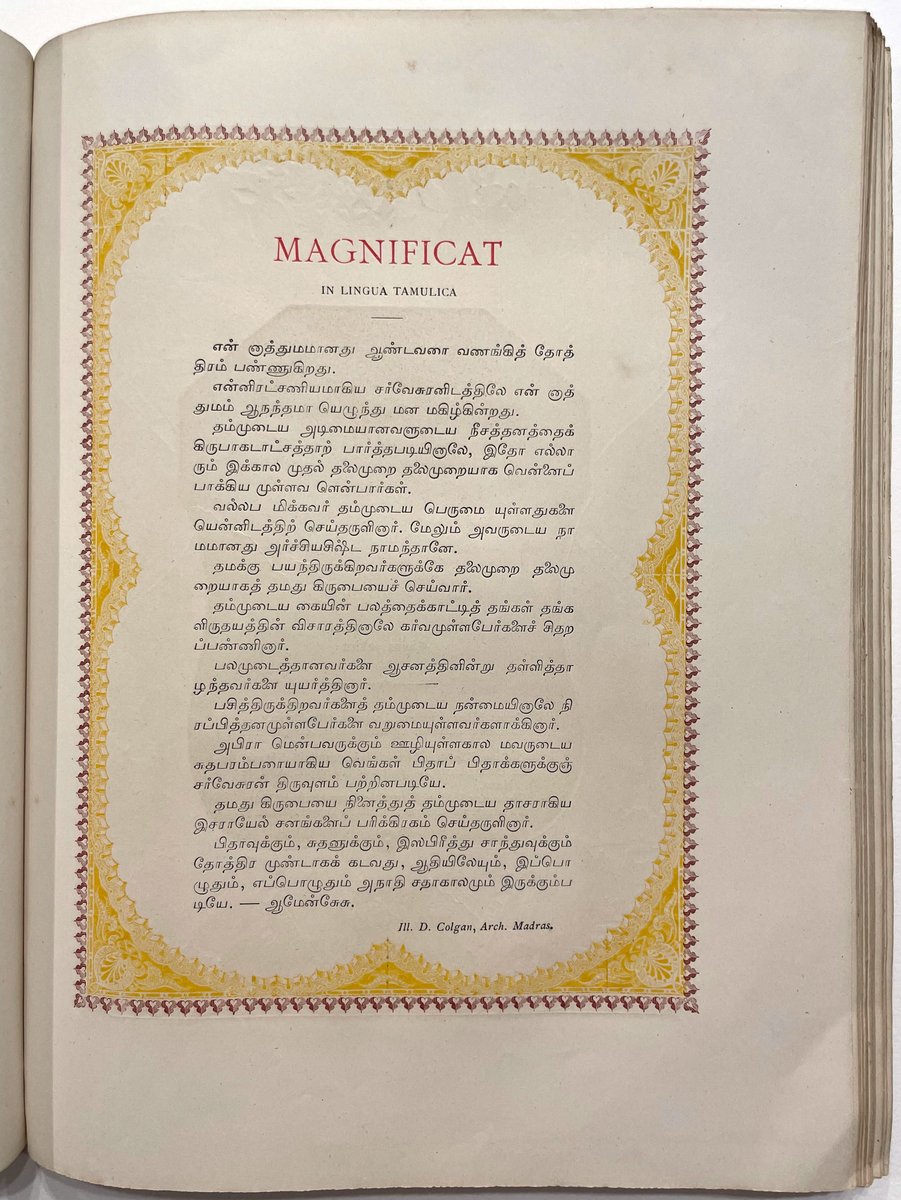 MAGNIFICAT
IN LINGUA TAMULICA
என் ஞத்துமமானது ஆண்டவரை வணங்கித் தோத்
திரம் பண்ணுகிறது.
என்னிரட்சணியமாகிய சர்வேசுரனிடத்திலே என் ஞத்
துமம் ஆநந்தமா யெழுந்து மன மகிழ்கின்றது.
தம்முடைய அடிமையானவளுடைய நீசத்தனத்தைக்
கிருபாகடாட்சத்தாற் பார்த்தபடியினாலே, இதோ எல்லா
ரும் இக்கால முதல் தலைமுறை தலைமுறையாக வென்னைப்
பாக்கிய முள்ளவ ளென்பார்கள்.
வல்லப மிக்கவர் தம்முடைய பெருமை யுள்ளதுகளை
யென்னிடத்திற் செய்தருளினார். மேலும் அவருடைய நா
மமானது அர்ச்சியசிஷ்ட நாமந்தானே.
தமக்கு பயந்திருக்கிறவர்களுக்கே தலைமுறை தலைமு
றையாகத் தமது கிருபையைச் செய்வார்.
தம்முடைய கையின் பலத்தைக்காட்டித் தங்கள் தங்க
ளிருதயத்தின் விசாரத்தினாலே கர்வமுள்ளபேர்களைச் சிதற
ப்பண்ணினார்.
பலமுடைத்தானவர்களை ஆசனத்தினின்று தள்ளித்தா
ழந்தவர்களை யுயர்த்தினார்.
பசித்திருக்கிறவர்களைத் தம்முடைய நன்மையினாலே நி
ரப்பித்தனமுள்ளபேர்களை வறுமையுள்ளவர்களாக்கினார்.
அபிரா மென்பவருக்கும் ஊழியுள்ளகால மவருடைய
சுதபரம்பரையாகிய வெங்கள் பிதாப் பிதாக்களுக்குஞ்
சர்வேசுரன் திருவுளம் பற்றினபடியே.
தமது கிருபையை நினைத்துத் தம்முடைய தாசராகிய
இசராயேல் சனங்களைப் பரிக்கிரகம் செய்தருளினார்.
பிதாவுக்கும், சுதனுக்கும், இஸ்பிரீத்து சாந்துவுக்கும்
தோத்திர முண்டாகக் கடவது, ஆதியிலேயும், இப்பொ
ழுதும், எப்பொழுதும் அநாதி சதாகாலமும் இருக்கும்ப
டியே. — ஆமேன்சேசு.
Ill. D. Colgan, Arch. Madras.